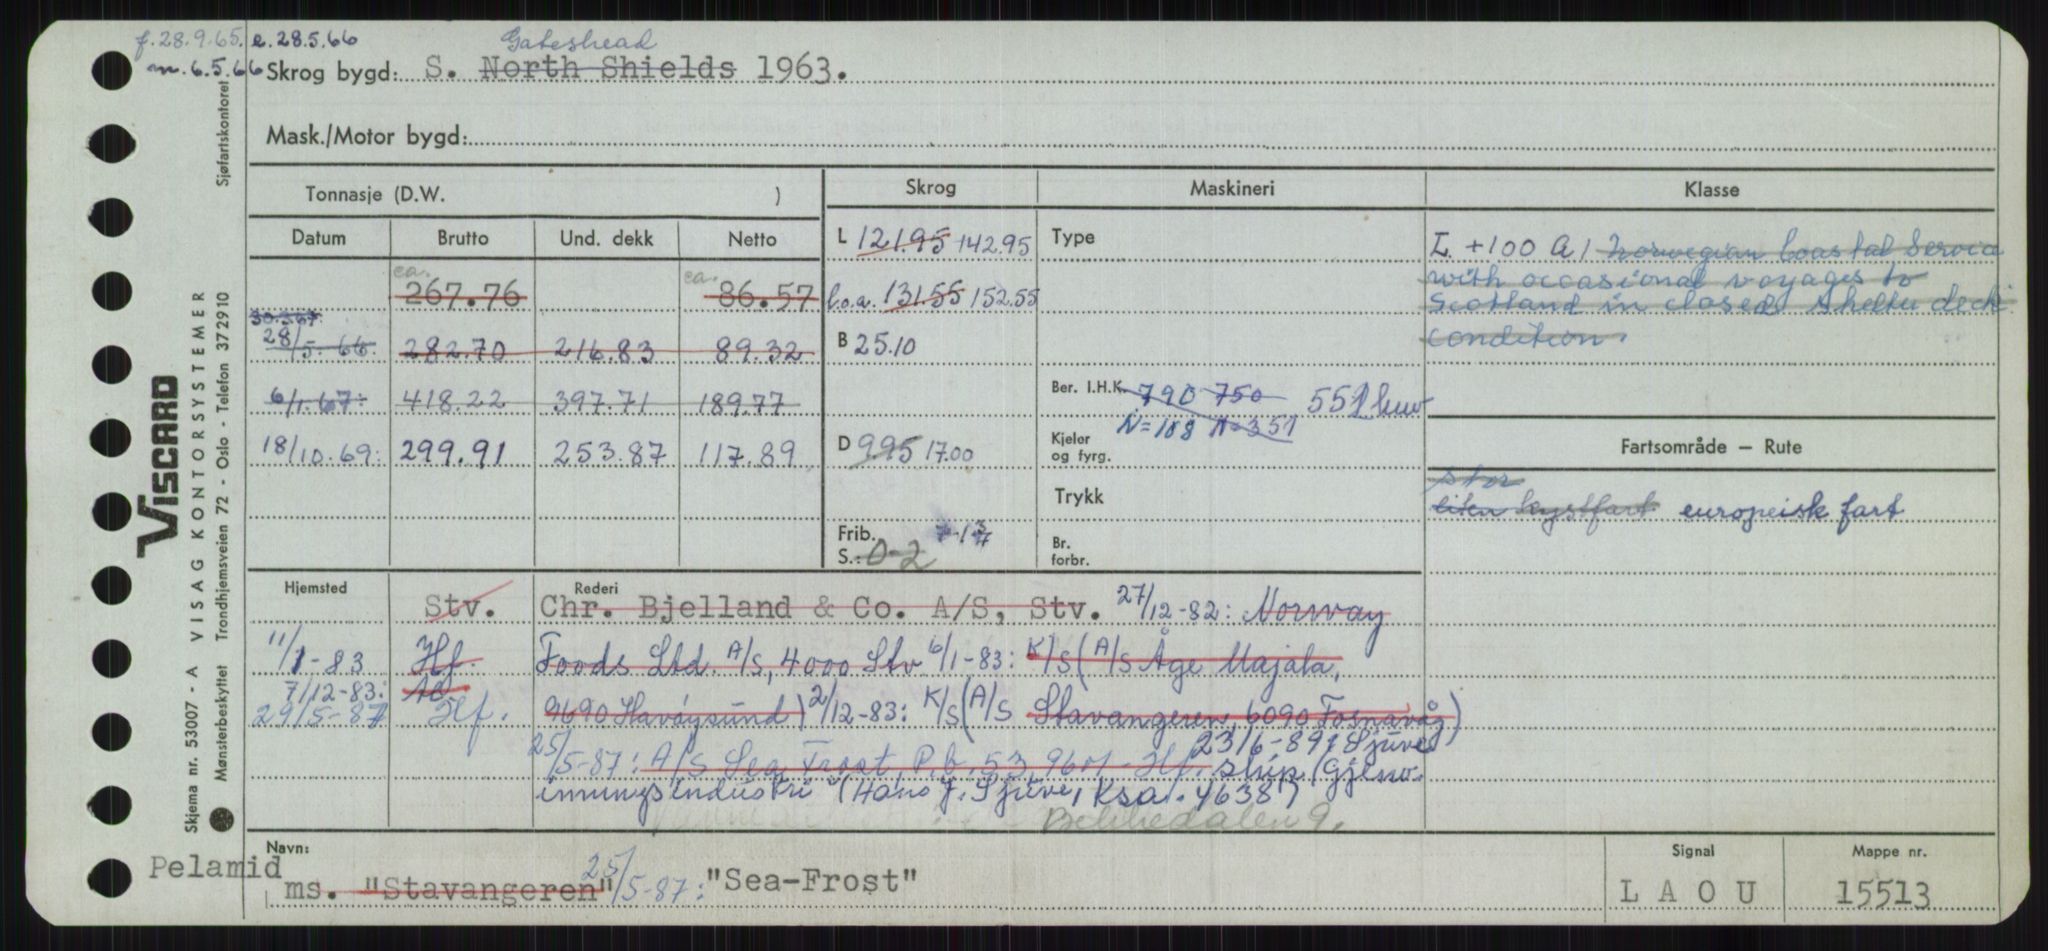 f.28.9.65. e.28.5.66
Gateshead
m.6.5.66 Skrog bygd: S. North Shields 1963.
Mask./Motor bygd:
Tonnasje (D.W. )
Skrog Maskineri Klasse
Datum Brutto Und. dekk Netto
ca. 267.76 ca. 86.57
30.3.67.
28/5-66. 282.70 216.83 89.32
6/1.67: 418.22 397.71 189.77
18/10.69: 299.91 253.87 117.89
L 121.95 142.95
l.o.a. 131.55 152.55
B 25.10
D 9.95 17.00
Frib. 7-1 3/7
S.: 0-2
Type
Ber. I.H.K. 790 750 551 kw
N=108 N=351
Kjeler
og fyrg.
Trykk
Br.
forbr.
I +100 A1 Norwegian Coastal Service
with occasional voyages to
Scotland in closed shelter deck
condition.
Fartsområde – Rute
stor
liten kystfart europeisk fart
Hjemsted Rederi
Stv. Chr. Bjelland & Co. A/S, Stv. 27/12-82: Norway
11/1-83 Hf. Foods Ltd. A/S, 4000 Stv 6/1-83: K/S (A/S Åge Majala,
7/12-83: 9690 Havøysund) 2/12-83: K/S (A/S Stavangeren, 6090 Fosnavåg)
29/5-87 Hf.
25/5-87: A/S Sea Frost, P.b. 53, 9601 - Hf. 23/6-89: Sjuves
skip (Gjenv.
innungsindustri (Hans J. Sjuve, Ksa. 4638)
9.
Navn:
Pelamid
ms. "Stavangeren" 25/5-87: "Sea-Frost"
Signal
L A O U
Mappe nr.
15513
Sjøfartskontoret
VISCARD
VISAG KONTORSYSTEMER
Trondhjemsveien 72 - Oslo - Telefon 372910
Skjema nr. 53007 - A
Mønsterbeskyttet